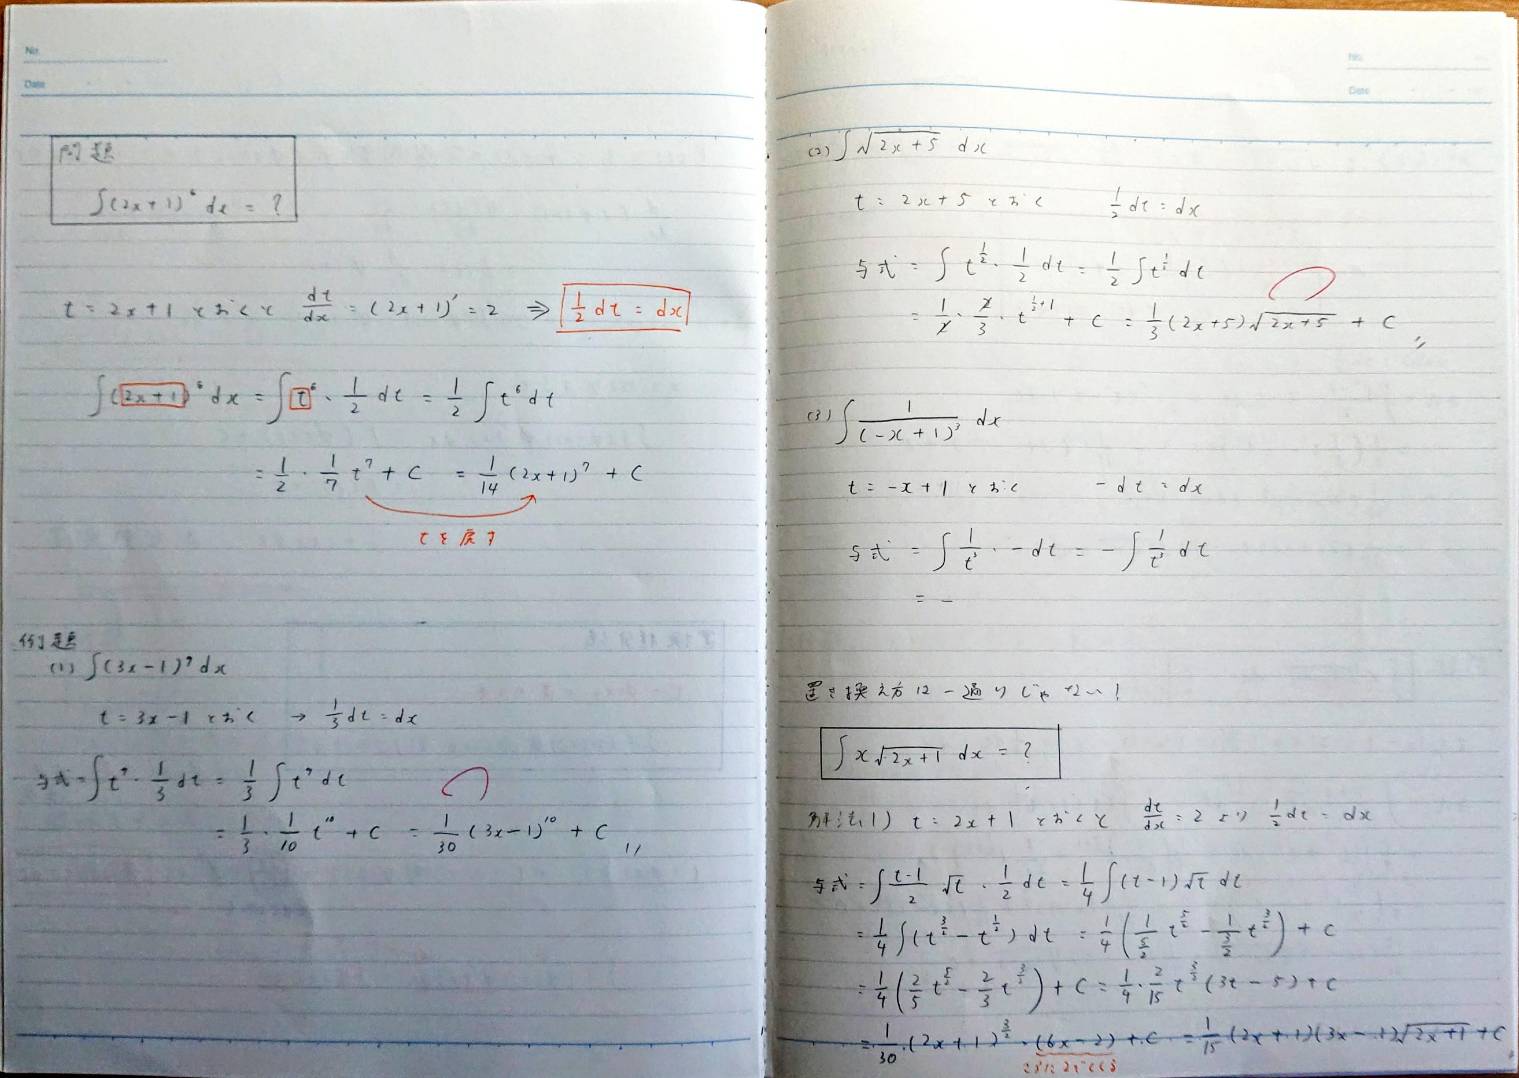 No.
Date
例題
∫(2x+1)⁶ dx = ?
t = 2x+1 とおくと dt/dx = (2x+1)' = 2 ⇒ 1/2 dt = dx
∫(2x+1)⁶ dx = ∫t⁶ · 1/2 dt = 1/2 ∫t⁶ dt
= 1/2 · 1/7 t⁷ + C = 1/14 (2x+1)⁷ + C
tを戻す
例題
(1) ∫(3x-1)⁹ dx
t = 3x-1 とおく → 1/3 dt = dx
与式 = ∫t⁹ · 1/3 dt = 1/3 ∫t⁹ dt
= 1/3 · 1/10 t¹⁰ + C = 1/30 (3x-1)¹⁰ + C
No.
Date
(2) ∫√(2x+5) dx
t = 2x+5 とおく 1/2 dt = dx
与式 = ∫t^(1/2) · 1/2 dt = 1/2 ∫t^(1/2) dt
= 1/2 · 2/3 · t^(1/2+1) + C = 1/3 (2x+5)√(2x+5) + C
(3) ∫ 1/(-x+1)³ dx
t = -x+1 とおく -dt = dx
与式 = ∫ 1/t³ · -dt = -∫ 1/t³ dt
= -
置き換え方は一通りじゃない!
∫x√(2x+1) dx = ?
解法1) t = 2x+1 とおくと dt/dx = 2 より 1/2 dt = dx
与式 = ∫ (t-1)/2 √t · 1/2 dt = 1/4 ∫(t-1)√t dt
= 1/4 ∫(t^(3/2) - t^(1/2)) dt = 1/4 (1/(5/2) t^(5/2) - 1/(3/2) t^(3/2)) + C
= 1/4 (2/5 t^(5/2) - 2/3 t^(3/2)) + C = 1/4 · 2/15 t^(3/2) (3t-5) + C
= 1/30 · (2x+1)^(3/2) · (6x-2) + C = 1/15 (2x+1)(3x-1)√(2x+1) + C